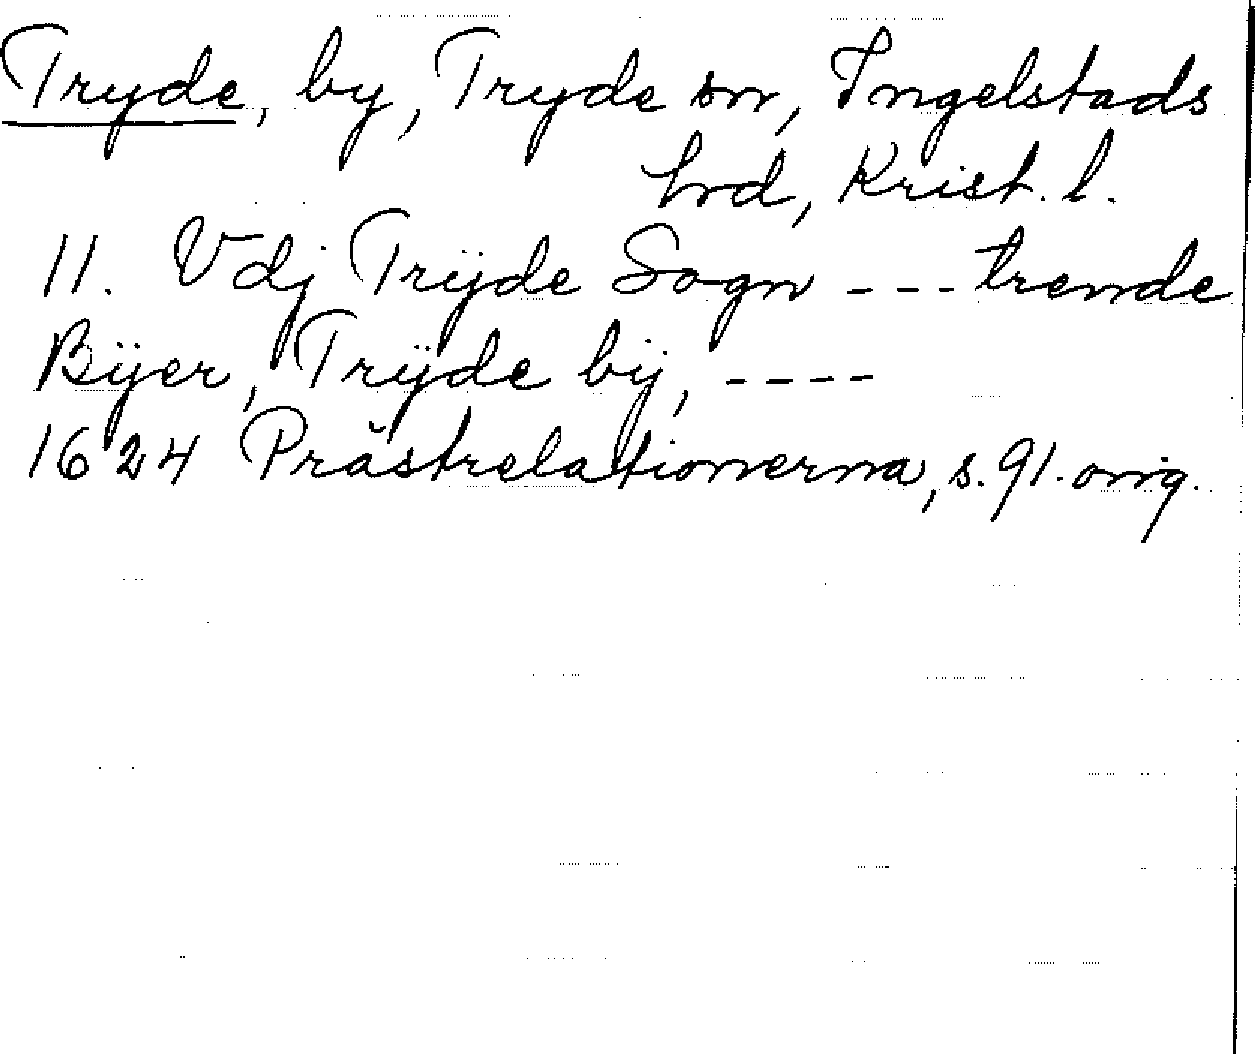 Tryde, by, Tryde sn, Ingelstads
hrd, Krist. l.
11. Vdj Trÿde Sogn --- trende
Bÿer, Trÿde bÿ, ----
1624 Prästrelationerna, s. 91. orig.